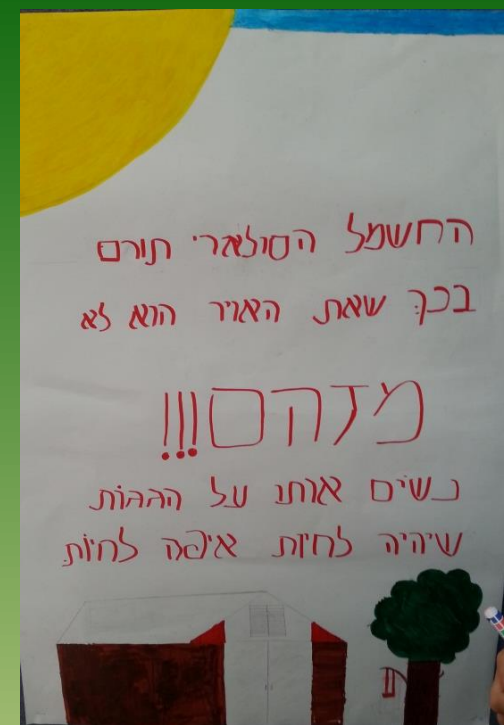 החשמל הסולארי תורם
בכך שאת האויר הוא לא
מזהם!!!
נשים אותו על הגגות
שיהיה לחיות איפה לחיות